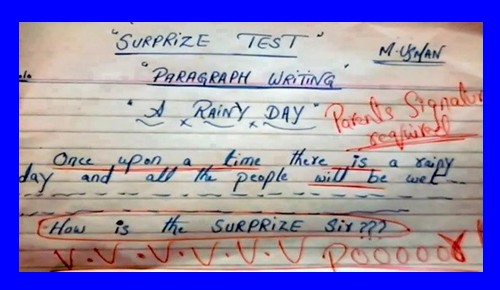 "SURPRIZE TEST"
M. USMAN
"PARAGRAPH WRITING"
"A RAINY DAY"
Parents Signatur
required
Once upon a time there is a rainy
day and all the people will be wet
How is the SURPRIZE Sir???
V.V.V.V.V.V POOOOOR